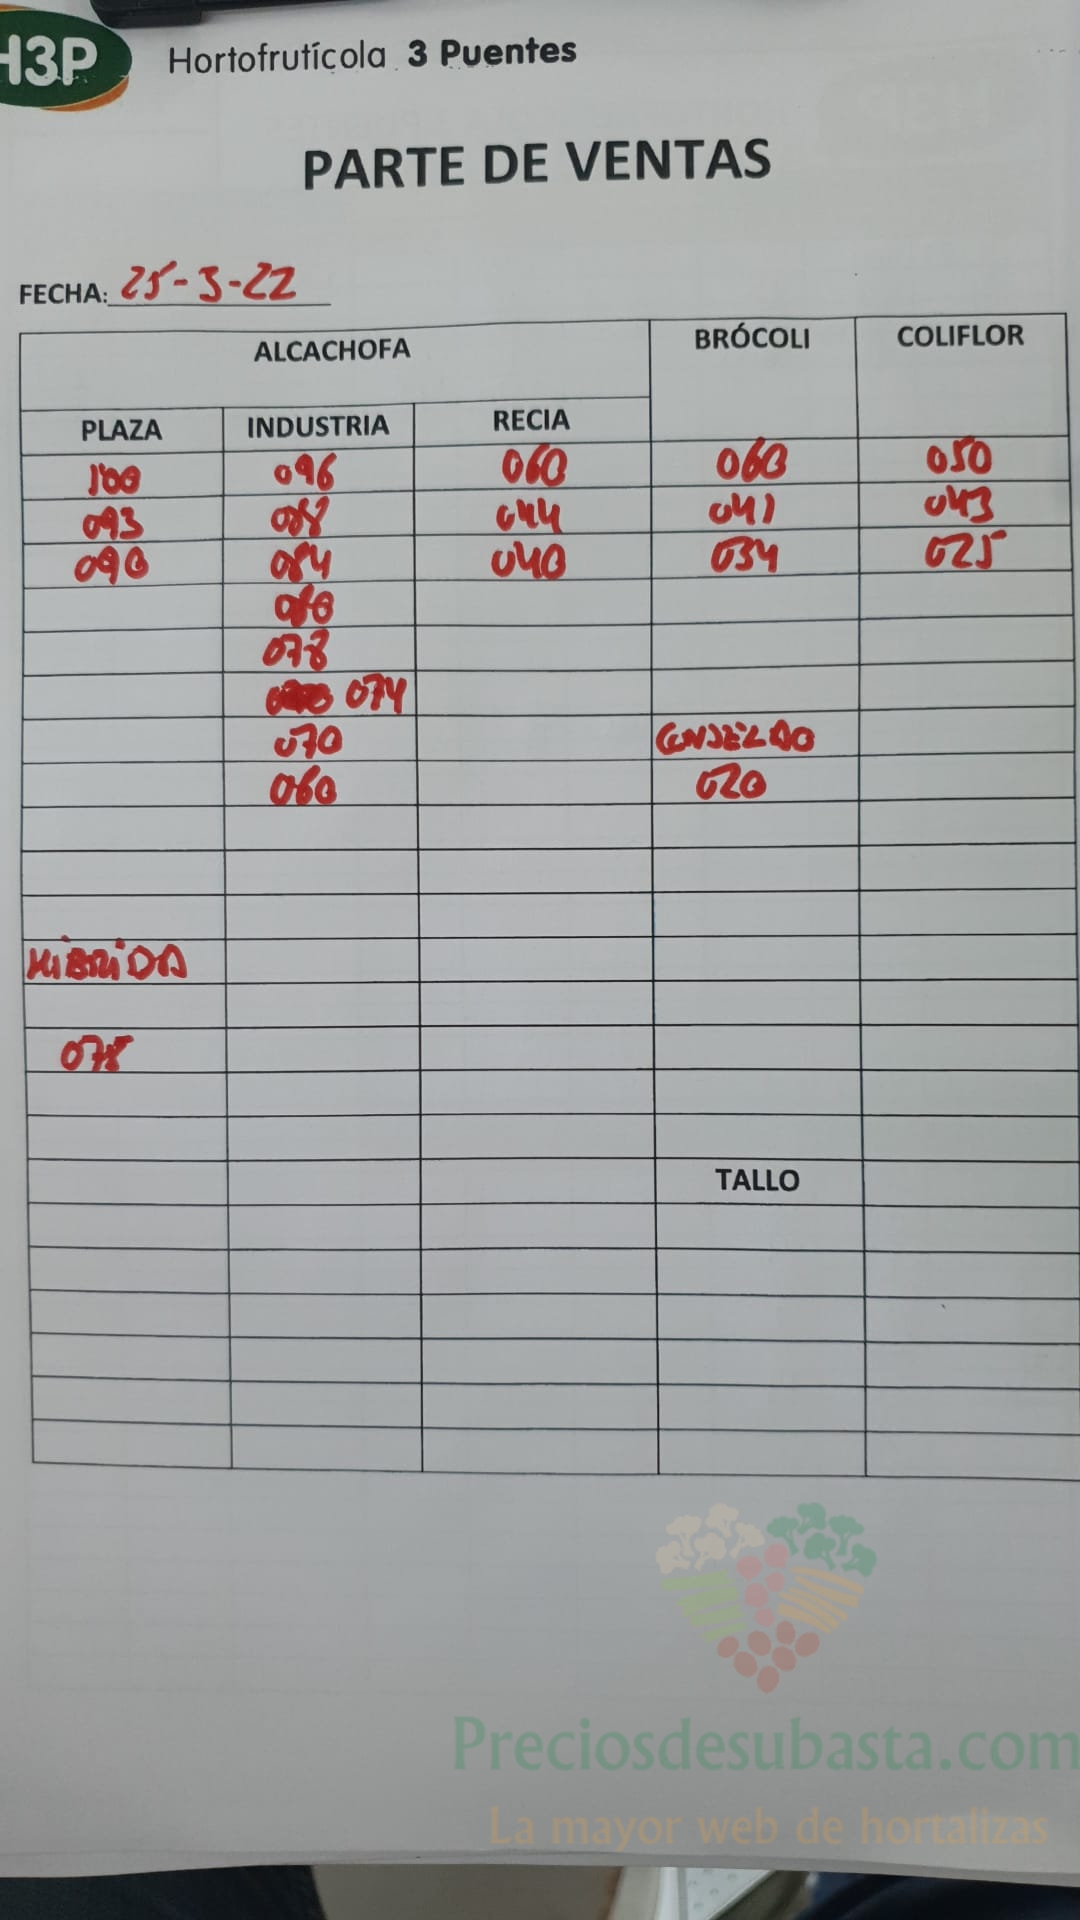 H3P Hortofrutícola 3 Puentes
PARTE DE VENTAS
FECHA: 25-3-22
ALCACHOFA BRÓCOLI COLIFLOR
PLAZA INDUSTRIA RECIA
1'00 096 060 060 050
093 088 044 041 043
090 084 040 034 025
080
078
074
070 CONJELAO
060 020
HIBRIDA
078
TALLO
Preciosdesubasta.com
La mayor web de hortalizas